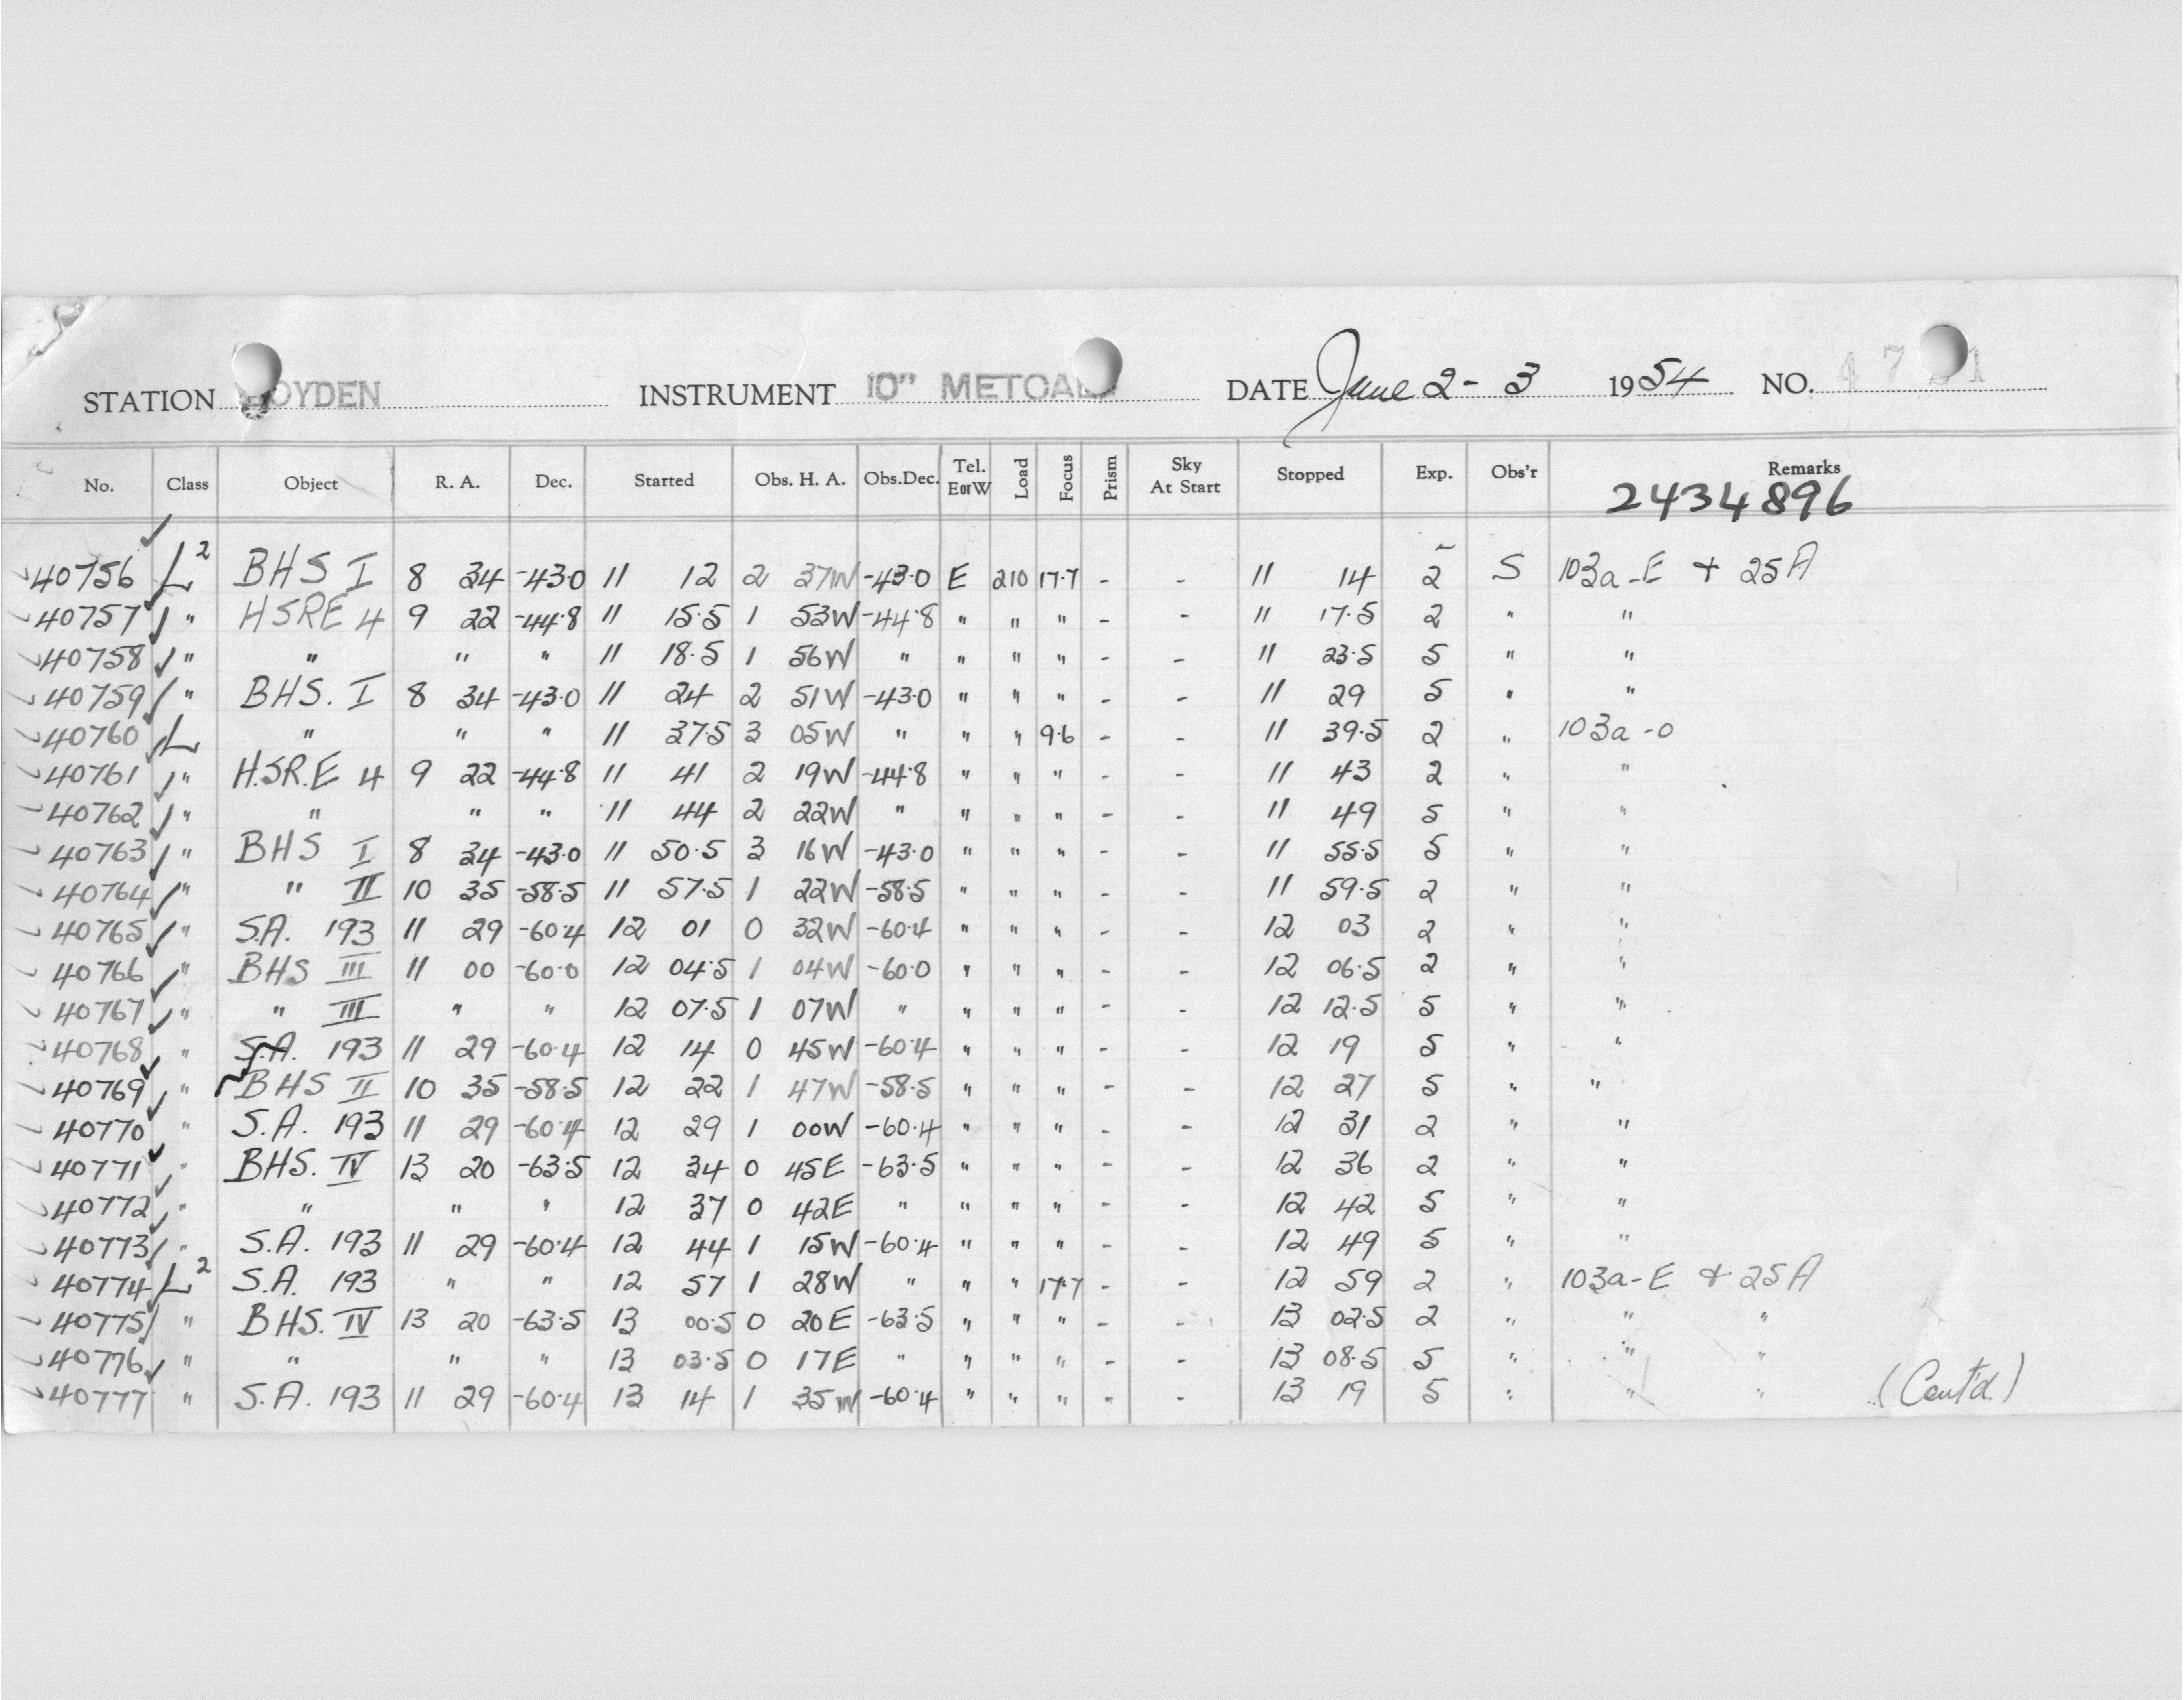 STATION BOYDEN INSTRUMENT 10" METCALF DATE June 2 - 3 1954 NO.
No. Class Object R. A. Dec. Started Obs. H. A. Obs.Dec. Tel. E or W Load Focus Prism Sky At Start Stopped Exp. Obs'r Remarks
2434896
40756 L² BHS I 8 34 -43.0 11 12 2 37W -43.0 E 210 17.7 - - 11 14 2 S 103a-E + 25A
40757 " HSRE 4 9 22 -44.8 11 15.5 1 53W -44.8 " " " - - 11 17.5 2 " "
40758 " " " " 11 18.5 1 56W " " " " - - 11 23.5 5 " "
40759 " BHS. I 8 34 -43.0 11 24 2 51W -43.0 " " " - - 11 29 5 " "
40760 L " " " 11 37.5 3 05W " " " 9.6 - - 11 39.5 2 " 103a-O
40761 " H.SR.E 4 9 22 -44.8 11 41 2 19W -44.8 " " " - - 11 43 2 " "
40762 " " " " 11 44 2 22W " " " " - - 11 49 5 " "
40763 " BHS I 8 34 -43.0 11 50.5 3 16W -43.0 " " " - - 11 55.5 5 " "
40764 " " II 10 35 -58.5 11 57.5 1 22W -58.5 " " " - - 11 59.5 2 " "
40765 " S.A. 193 11 29 -60.4 12 01 0 32W -60.4 " " " - - 12 03 2 " "
40766 " BHS III 11 00 -60.0 12 04.5 1 04W -60.0 " " " - - 12 06.5 2 " "
40767 " " III " " 12 07.5 1 07W " " " " - - 12 12.5 5 " "
40768 " S.A. 193 11 29 -60.4 12 14 0 45W -60.4 " " " - - 12 19 5 " "
40769 " BHS II 10 35 -58.5 12 22 1 47W -58.5 " " " - - 12 27 5 " "
40770 " S.A. 193 11 29 -60.4 12 29 1 00W -60.4 " " " - - 12 31 2 " "
40771 " BHS. IV 13 20 -63.5 12 34 0 45E -63.5 " " " - - 12 36 2 " "
40772 " " " " 12 37 0 42E " " " " - - 12 42 5 " "
40773 " S.A. 193 11 29 -60.4 12 44 1 15W -60.4 " " " - - 12 49 5 " "
40774 L² S.A. 193 " " 12 57 1 28W " " " 17.7 - - 12 59 2 " 103a-E + 25A
40775 " BHS. IV 13 20 -63.5 13 00.5 0 20E -63.5 " " " - - 13 02.5 2 " " "
40776 " " " " 13 03.5 0 17E " " " " - - 13 08.5 5 " " "
40777 " S.A. 193 11 29 -60.4 13 14 1 35W -60.4 " " " - - 13 19 5 " " " (Cont'd.)